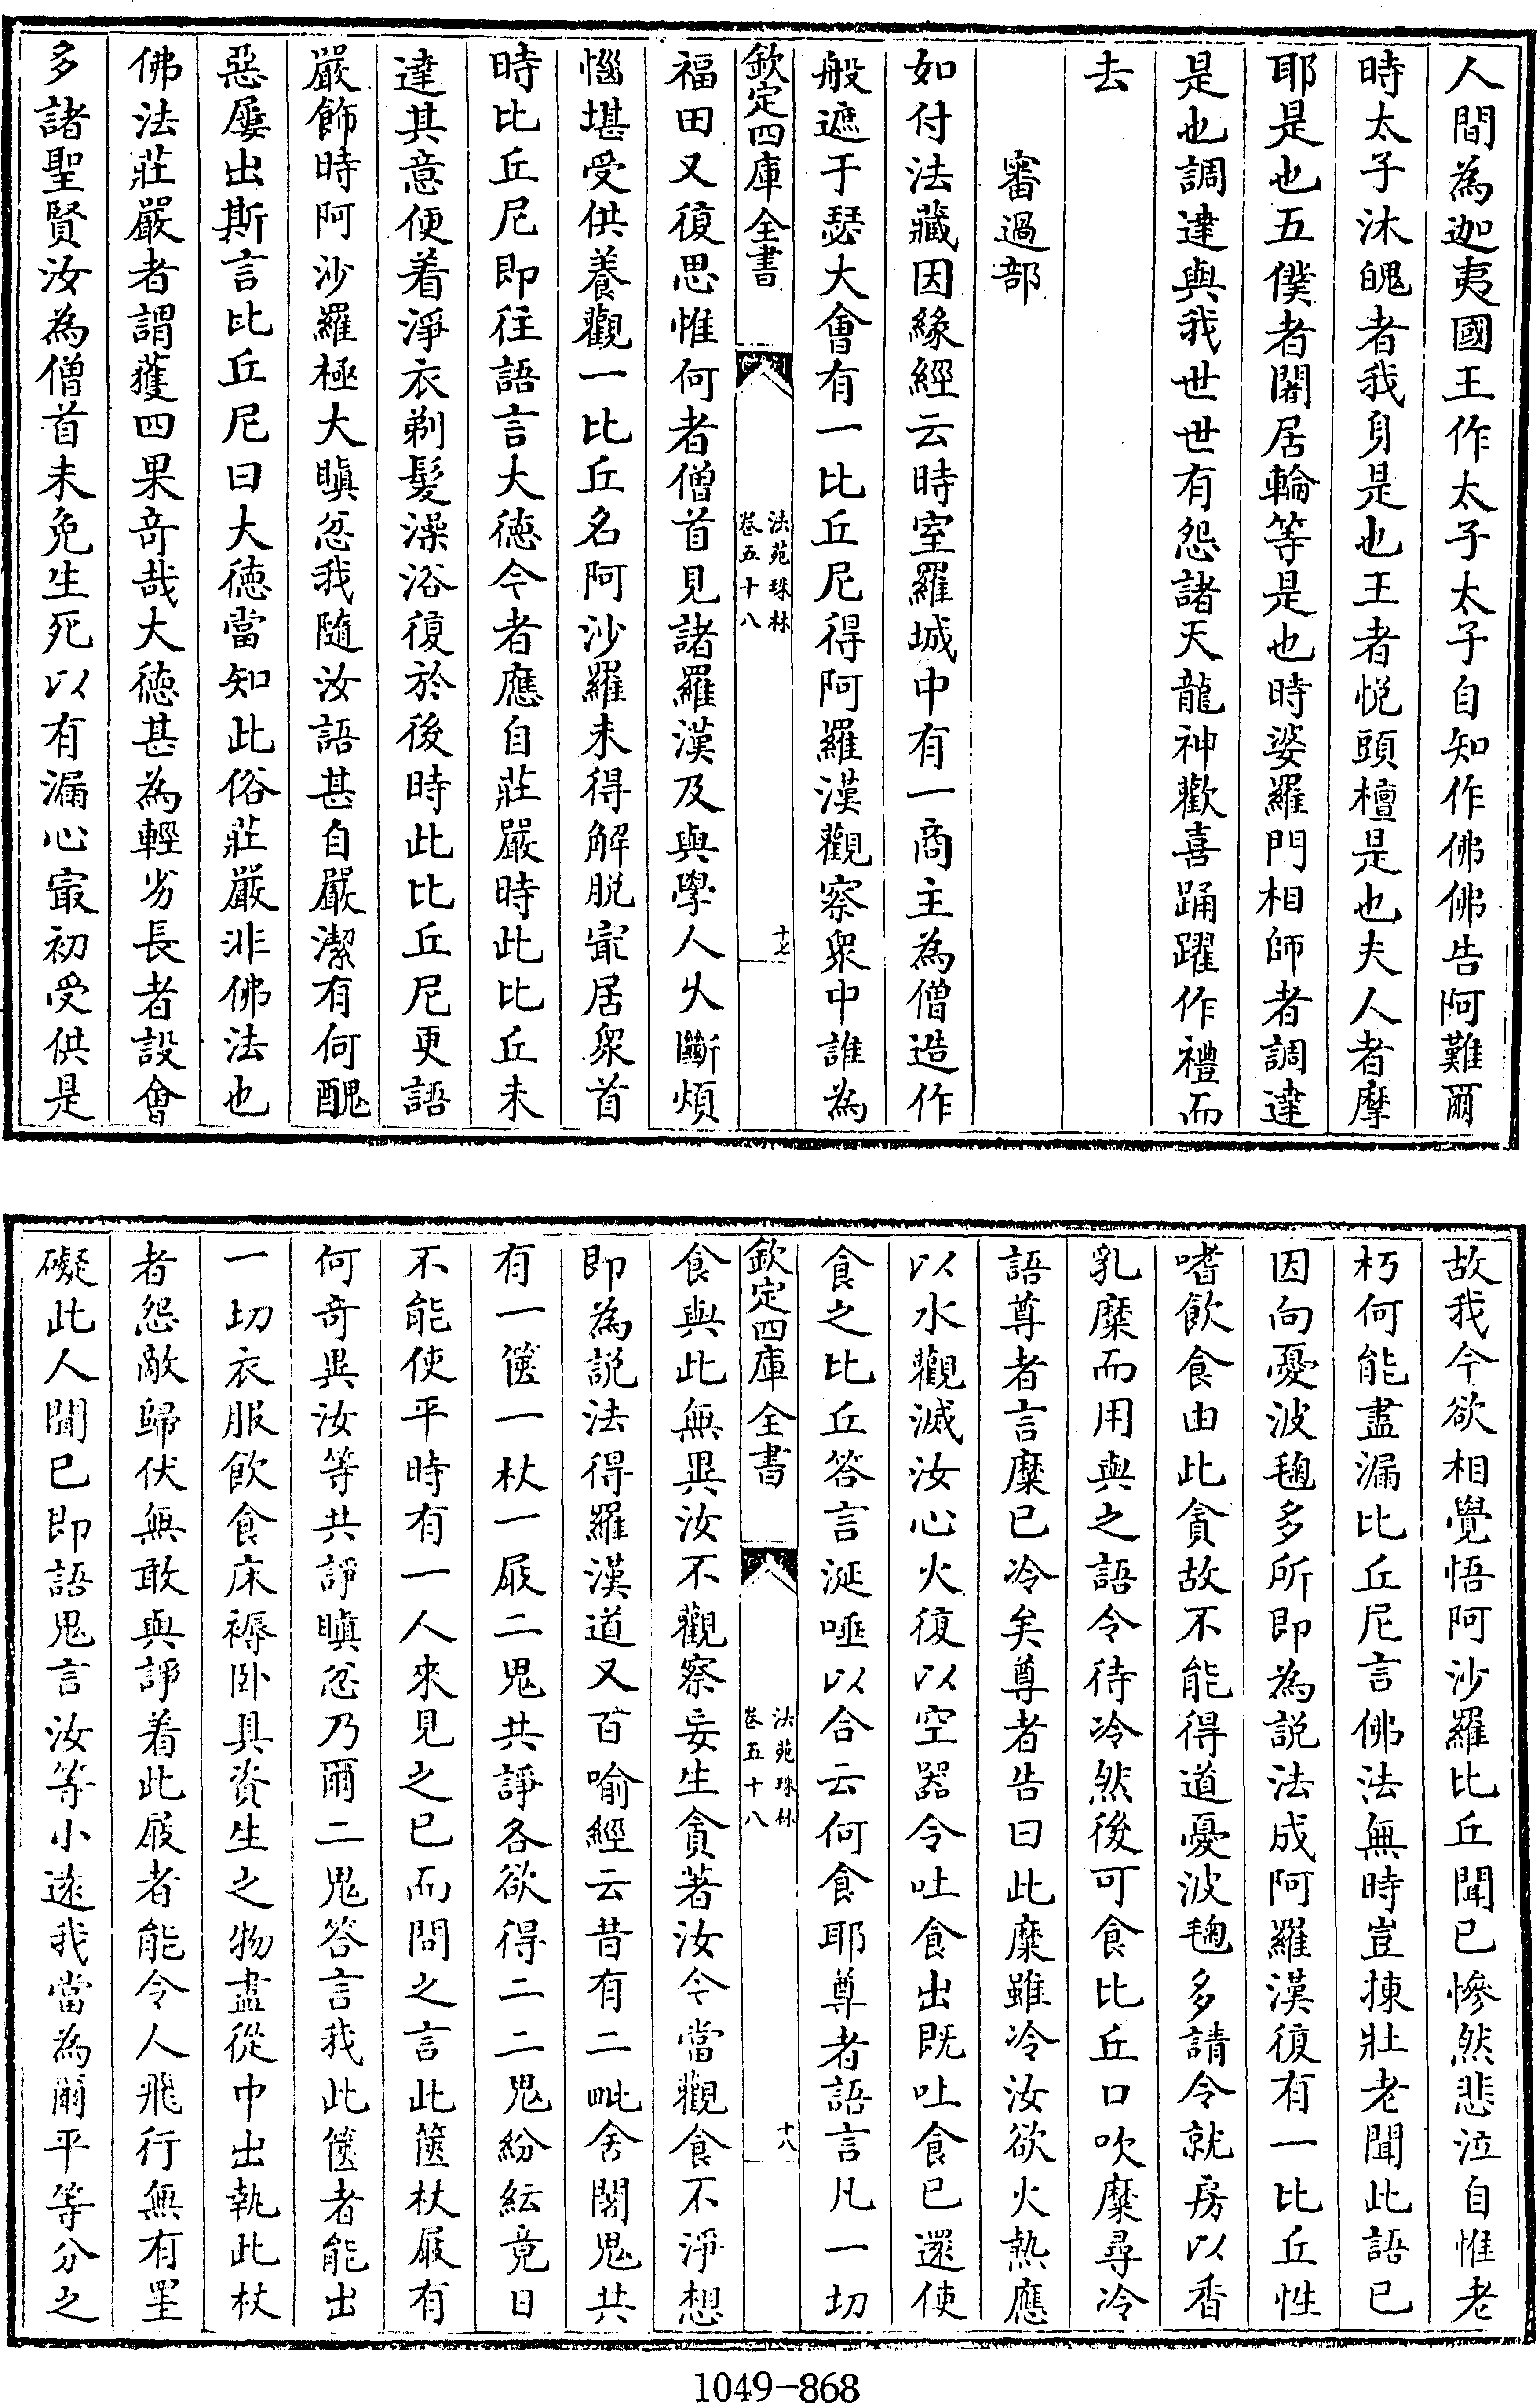 人間為迦夷國王作太子太子自知作佛佛告阿難爾
時太子沐魄者我身是也王者悦頭檀是也夫人者摩
耶是也五僕者闍居輪等是也時婆羅門相師者調達
是也調達與我世世有怨諸天龍神歡喜踊躍作禮而
去
審過部
如付法藏因緣經云時室羅城中有一商主為僧造作
般遮于瑟大會有一比丘尼得阿羅漢觀察衆中誰為
欽定四庫全書
法苑珠林
卷五十八
十七
福田又復思惟何者僧首見諸羅漢及與學人少斷煩
惱堪受供養觀一比丘名阿沙羅未得解脱寂居衆首
時比丘尼即往語言大徳今者應自莊嚴時此比丘未
達其意便着淨衣剃髮澡浴復於後時此比丘尼更語
嚴飾時阿沙羅極大瞋忿我隨汝語甚自嚴潔有何醜
惡屢出斯言比丘尼曰大徳當知此俗莊嚴非佛法也
佛法莊嚴者謂獲四果奇哉大徳甚為輕劣長者設會
多諸聖賢汝為僧首未免生死以有漏心㝡初受供是
故我今欲相覺悟阿沙羅比丘聞已慘然悲泣自惟老
朽何能盡漏比丘尼言佛法無時豈揀壯老聞此語已
因向憂波毱多所即為説法成阿羅漢復有一比丘性
嗜飲食由此貪故不能得道憂波毱多請令就房以香
乳糜而用與之語令待冷然後可食比丘口吹糜尋冷
語尊者言糜已冷矣尊者告曰此糜雖冷汝欲火熱應
以水觀滅汝心火復以空器令吐食出既吐食已還使
食之比丘答言涎唾以合云何食耶尊者語言凡一切
欽定四庫全書
法苑珠林
卷五十八
十八
食與此無異汝不觀察妄生貪著汝今當觀食不淨想
即為説法得羅漢道又百喻經云昔有二毗舍闍鬼共
有一篋一杖一屐二鬼共諍各欲得二二鬼紛紜竟日
不能使平時有一人來見之已而問之言此篋杖屐有
何奇異汝等共諍瞋忿乃爾二鬼答言我此篋者能出
一切衣服飲食床褥卧具資生之物盡從中出執此杖
者怨敵歸伏無敢與諍着此屐者能令人飛行無有罣
礙此人聞已即語鬼言汝等小逺我當為爾平等分之
1049-868